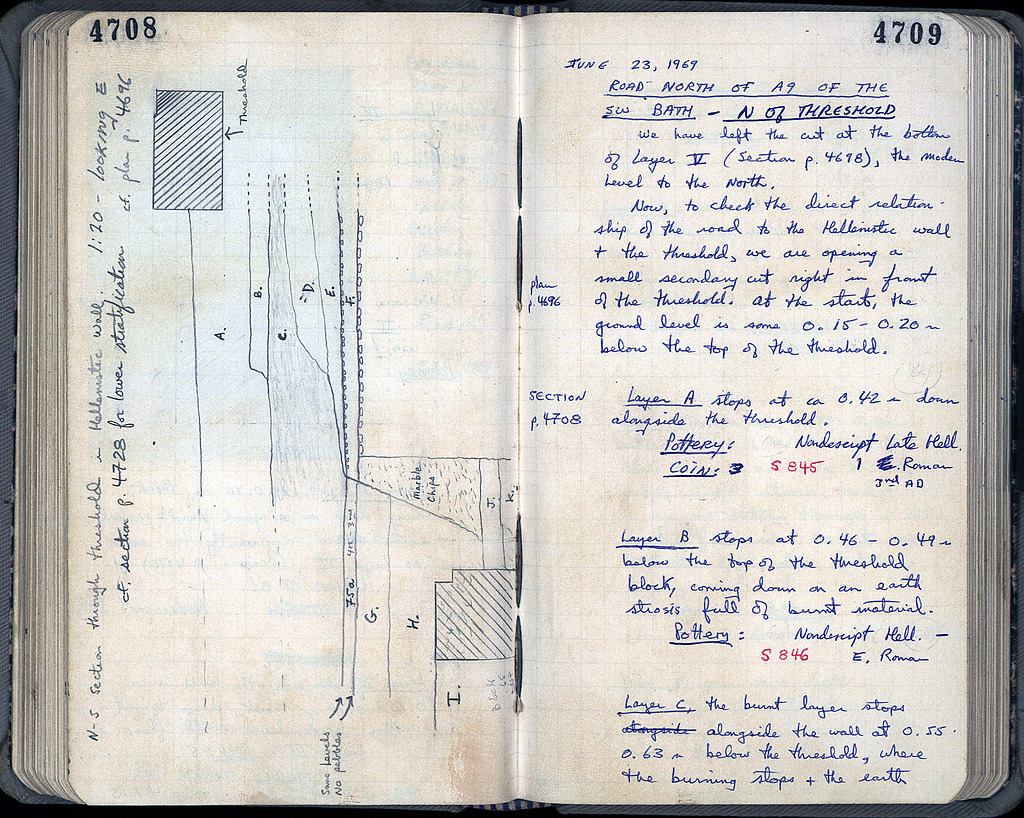 4708
N-S section through threshold in Hellenistic wall. 1:20 - looking E
cf. section p. 4728 for lower stratification cf. plan p. 4696
Threshold
A.
B.
C.
D.
E.
F.
Marble
Chips
J.
K.
75a
4th - 3rd
G.
H.
I.
Same levels
No pebbles
4709
JUNE 23, 1969
ROAD NORTH OF A9 OF THE
SW BATH - N OF THRESHOLD
We have left the cut at the bottom
of Layer V (Section p. 4698), the modern
level to the North.
Now, to check the direct relation-
ship of the road to the Hellenistic wall
+ the threshold, we are opening a
plan
p. 4696
small secondary cut right in front
of the threshold. At the start, the
ground level is some 0.15 - 0.20 m
below the top of the threshold.
SECTION
p. 4708
Layer A stops at ca 0.42 m down
alongside the threshold.
Pottery: Nondescript Late Hell.
COIN: 3 S 845 1 E. Roman
3rd AD
Layer B stops at 0.46 - 0.49 m
below the top of the threshold
block, coming down on an earth
strosis full of burnt material.
Pottery: Nondescript Hell. -
S 846 E. Roman
Layer C, the burnt layer stops
alongside alongside the wall at 0.55 -
0.63 m below the threshold, where
the burning stops + the earth